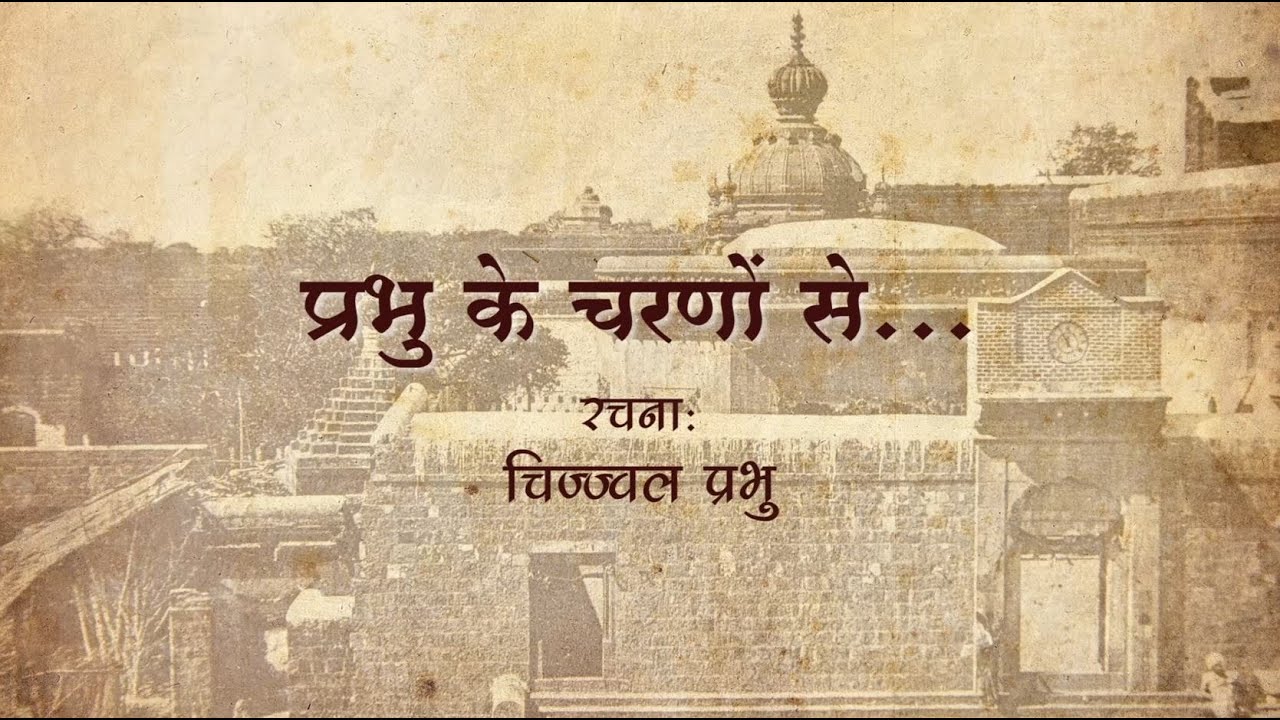 प्रभु के चरणों से...
रचना:
चिज्ज्वल प्रभु